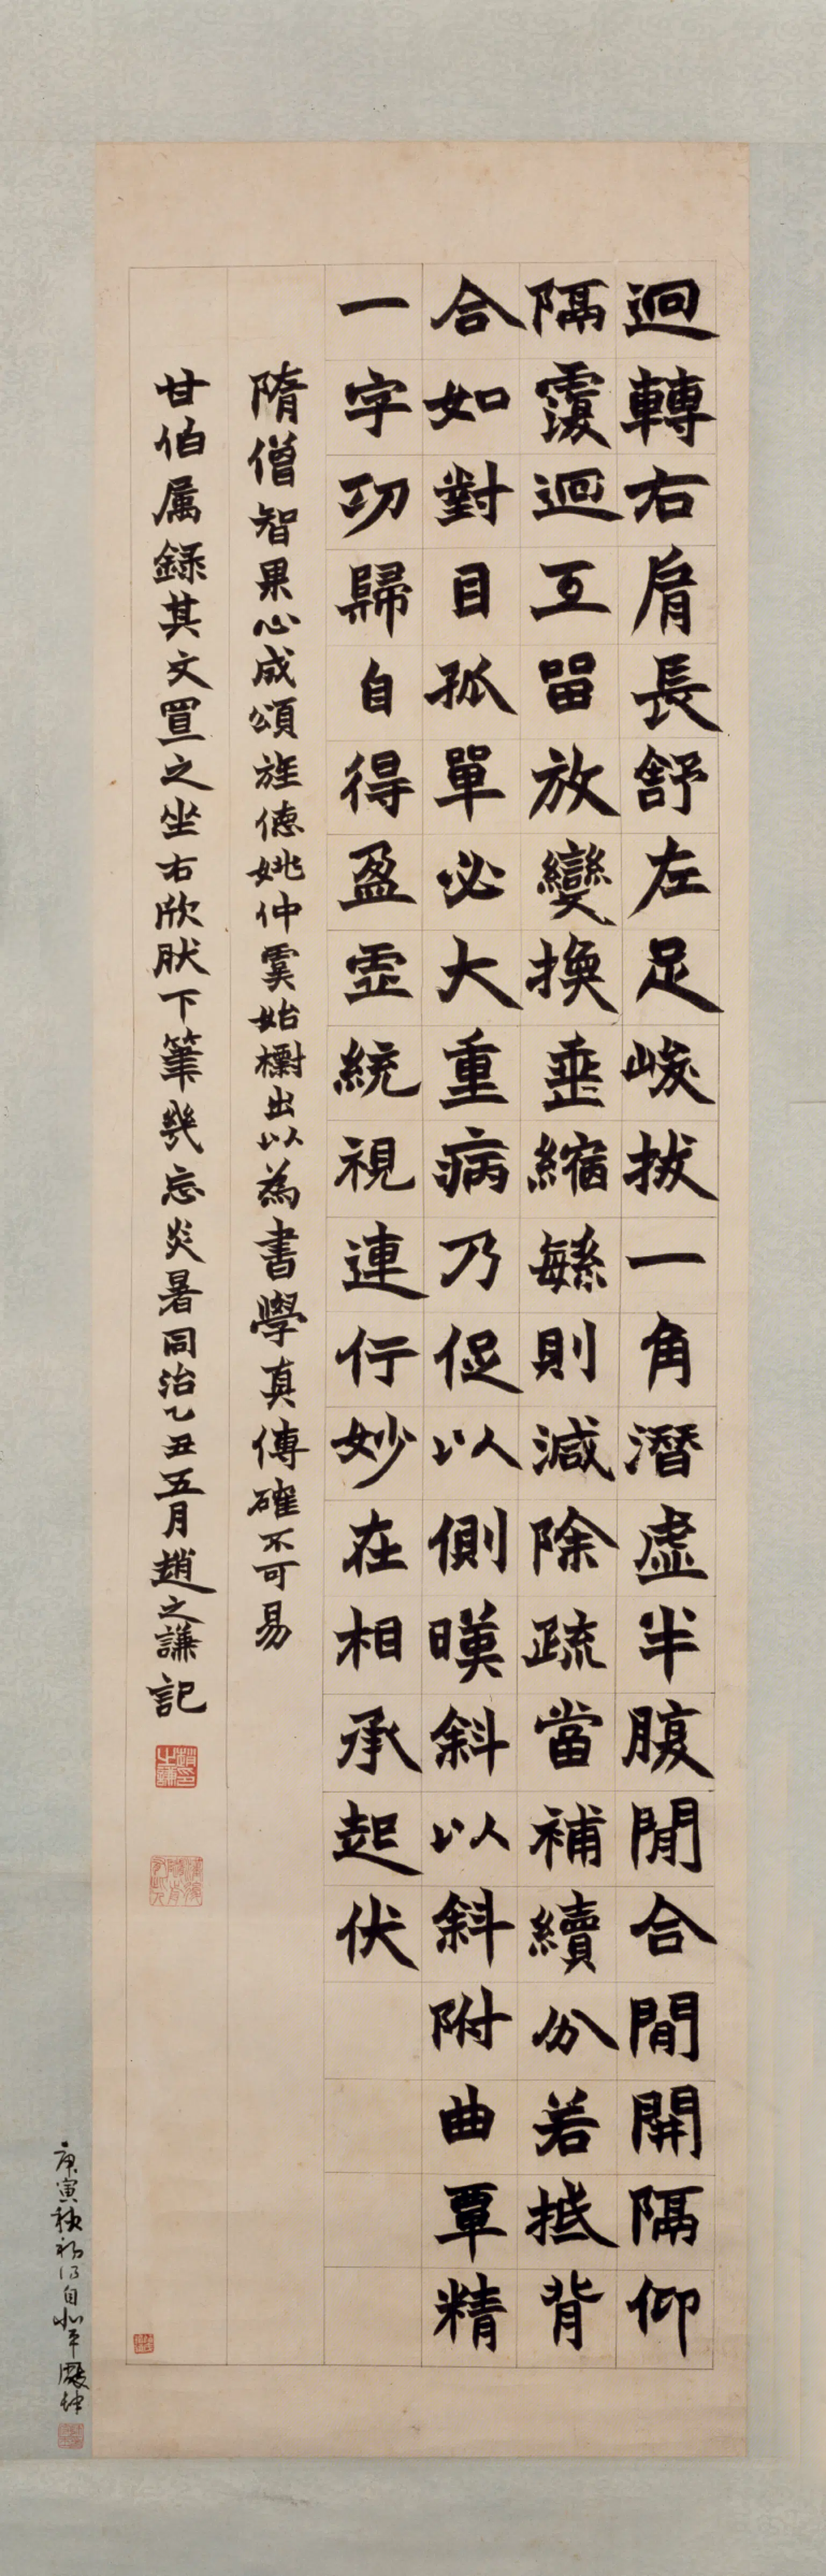 迴轉右肩長舒左足峻拔一角潛虛半腹間合間開隔仰
隔覆迴互留放變換垂縮繇則減除疏當補續分若抵背
合如對目孤單必大重病乃促以側暎斜以斜附曲覃精
一字功歸自得盈虛統視連行妙在相承起伏
隋僧智果心成頌旌德姚仲虞始檢出以為書學真傳確不可易
甘伯屬錄其文置之坐右欣肰下筆幾忘炎暑同治乙丑五月趙之謙記
庚寅秋初得自北平